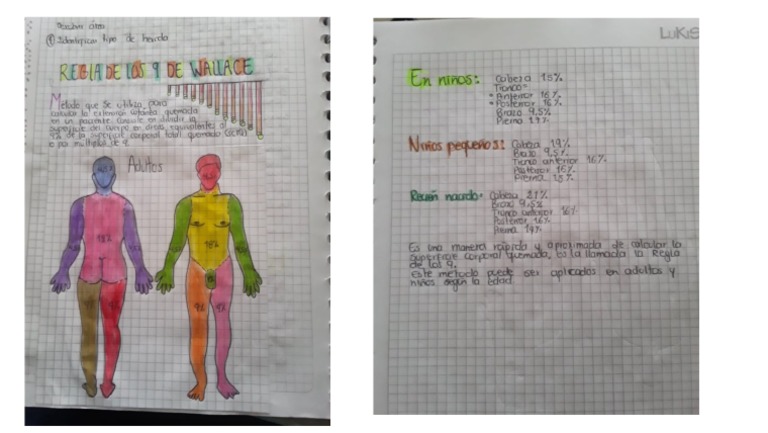 ① Identificar tipo de herida
REGLA DE LOS 9 DE WALLACE
Método que se utiliza para
calcular la extensión cutánea quemada
en un paciente. Consiste en dividir la
superficie del cuerpo en áreas equivalentes al
9% de la superficie corporal total quemada
o por múltiplos de 9.
Adultos
18%
18%
9%
9%
LuKiS
En niños: Cabeza 15%
Tronco=
• Anterior 16%
• Posterior 16%
Brazo 9,5%
Pierna 17%
Niños pequeños: Cabeza 19%
Brazo 9,5%
Tronco anterior 16%
Posterior 16%
Pierna 15%
Recién nacido= Cabeza 21%
Brazo 9,5%
Tronco anterior 16%
Posterior 16%
Pierna 14%
Es una manera rápida y aproximada de calcular la
superficie corporal quemada, es la llamada la Regla
de los 9.
Este método puede ser aplicados en adultos y
niños según la edad.